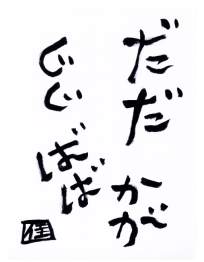 だだ かが
じじ ばば
佳